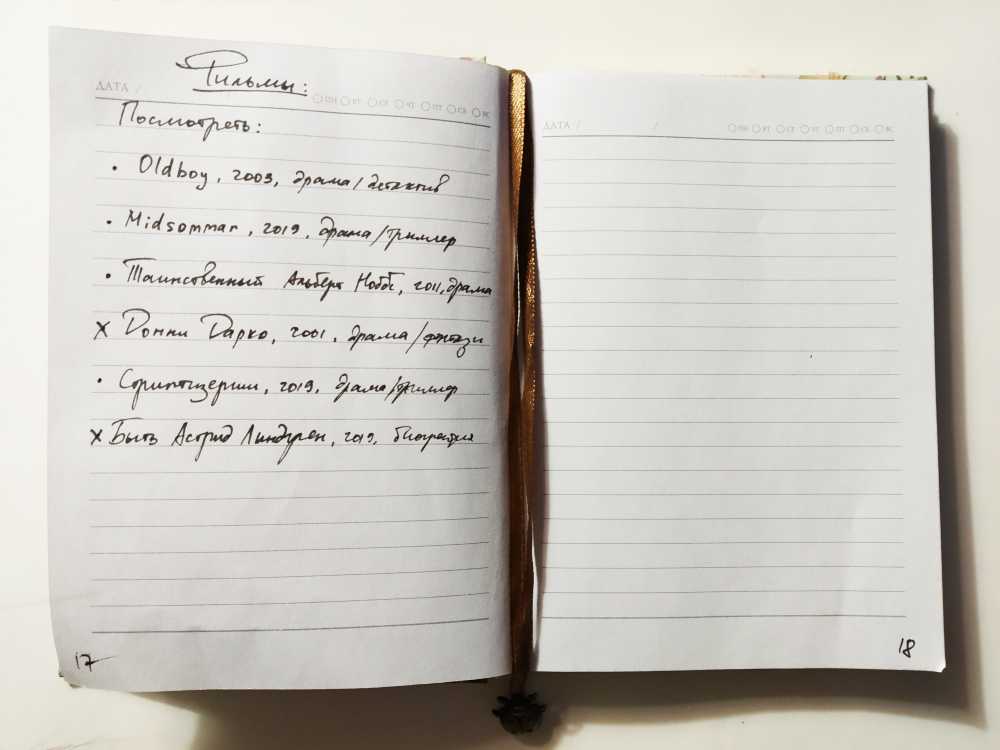 Фильмы:
ДАТА /
ПН ВТ СР ЧТ ПТ СБ ВС
Посмотреть:
• Oldboy, 2003, драма/детектив
• Midsommar, 2019, драма/триллер
• Таинственный Альберт Ноббс, 2011, драма
x Донни Дарко, 2001, драма/фэнтези
• Стриптизерши, 2019, драма/триллер
x Быть Астрид Линдгрен, 2019, биография
17
ДАТА / /
ПН ВТ СР ЧТ ПТ СБ ВС
18